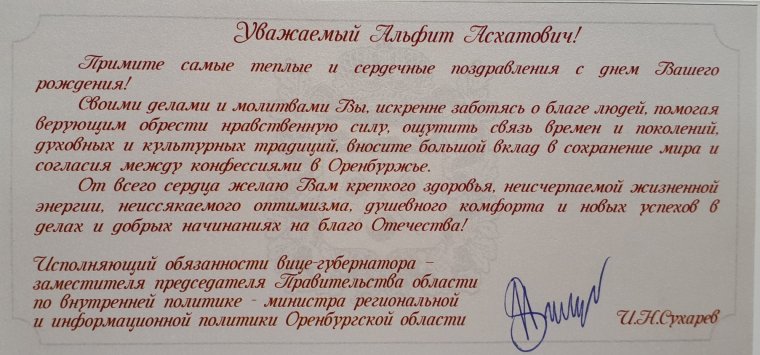 Уважаемый Альфит Асхатович!
Примите самые теплые и сердечные поздравления с днем Вашего
рождения!
Своими делами и молитвами Вы, искренне заботясь о благе людей, помогая
верующим обрести нравственную силу, ощутить связь времен и поколений,
духовных и культурных традиций, вносите большой вклад в сохранение мира и
согласия между конфессиями в Оренбуржье.
От всего сердца желаю Вам крепкого здоровья, неисчерпаемой жизненной
энергии, неиссякаемого оптимизма, душевного комфорта и новых успехов в
делах и добрых начинаниях на благо Отечества!
Исполняющий обязанности вице-губернатора –
заместителя председателя Правительства области
по внутренней политике - министра региональной
и информационной политики Оренбургской области
И.Н.Сухарев